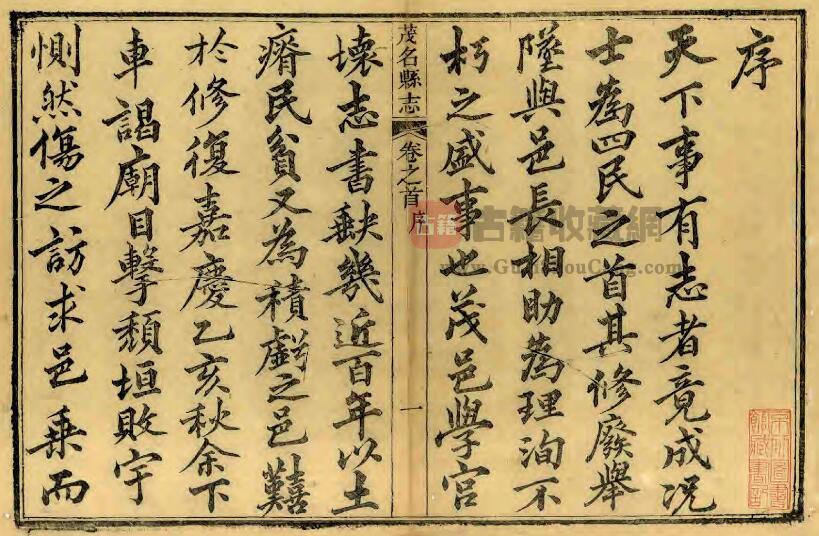 序
天下事有志者竟成况
士為四民之首其修廢舉
墜與邑長相助為理洵不
朽之盛事也茂邑學宫
茂名縣志
卷之首
序
一
壊志書缺幾近百年以土
瘠民貧又為積虧之邑囏
於修復嘉慶乙亥秋余下
車謁廟目擊頽垣敗宇
惻然傷之訪求邑乗而
古籍
古籍收藏網